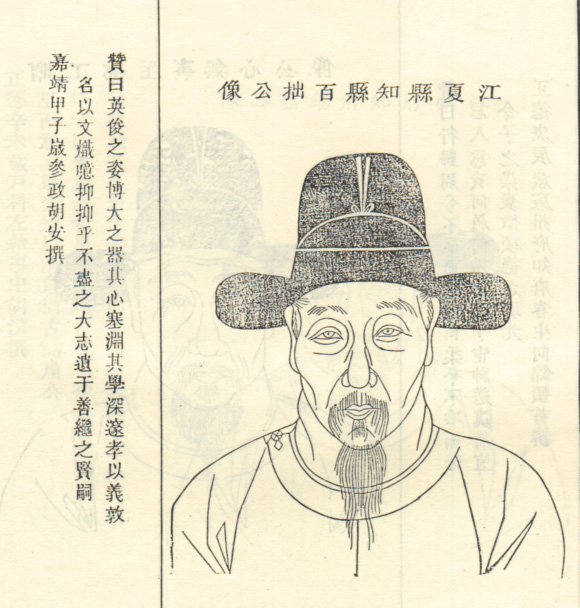 江夏縣知縣百拙公像
贊曰英俊之姿博大之器其心塞淵其學深邃孝以義敦
名以文熾噫抑抑乎不盡之大志遺于善繼之賢嗣
嘉靖甲子歲參政胡安撰